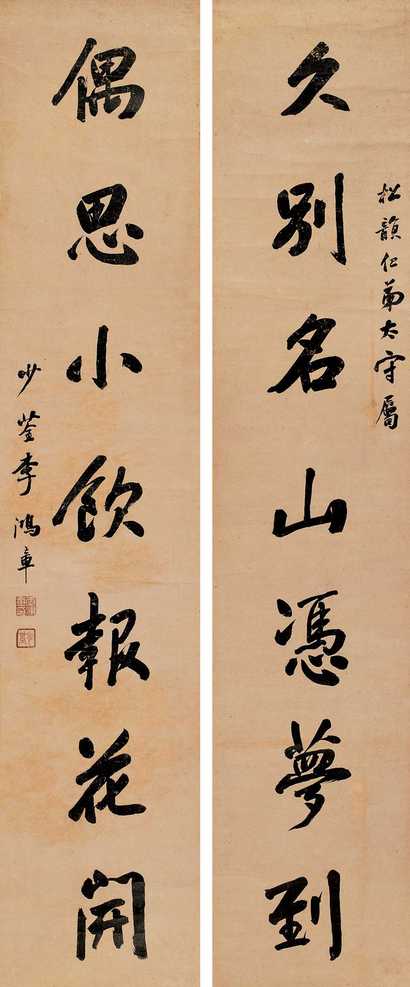 松韻仁弟太守屬
久別名山憑夢到
偶思小飲報花開
少荃李鴻章